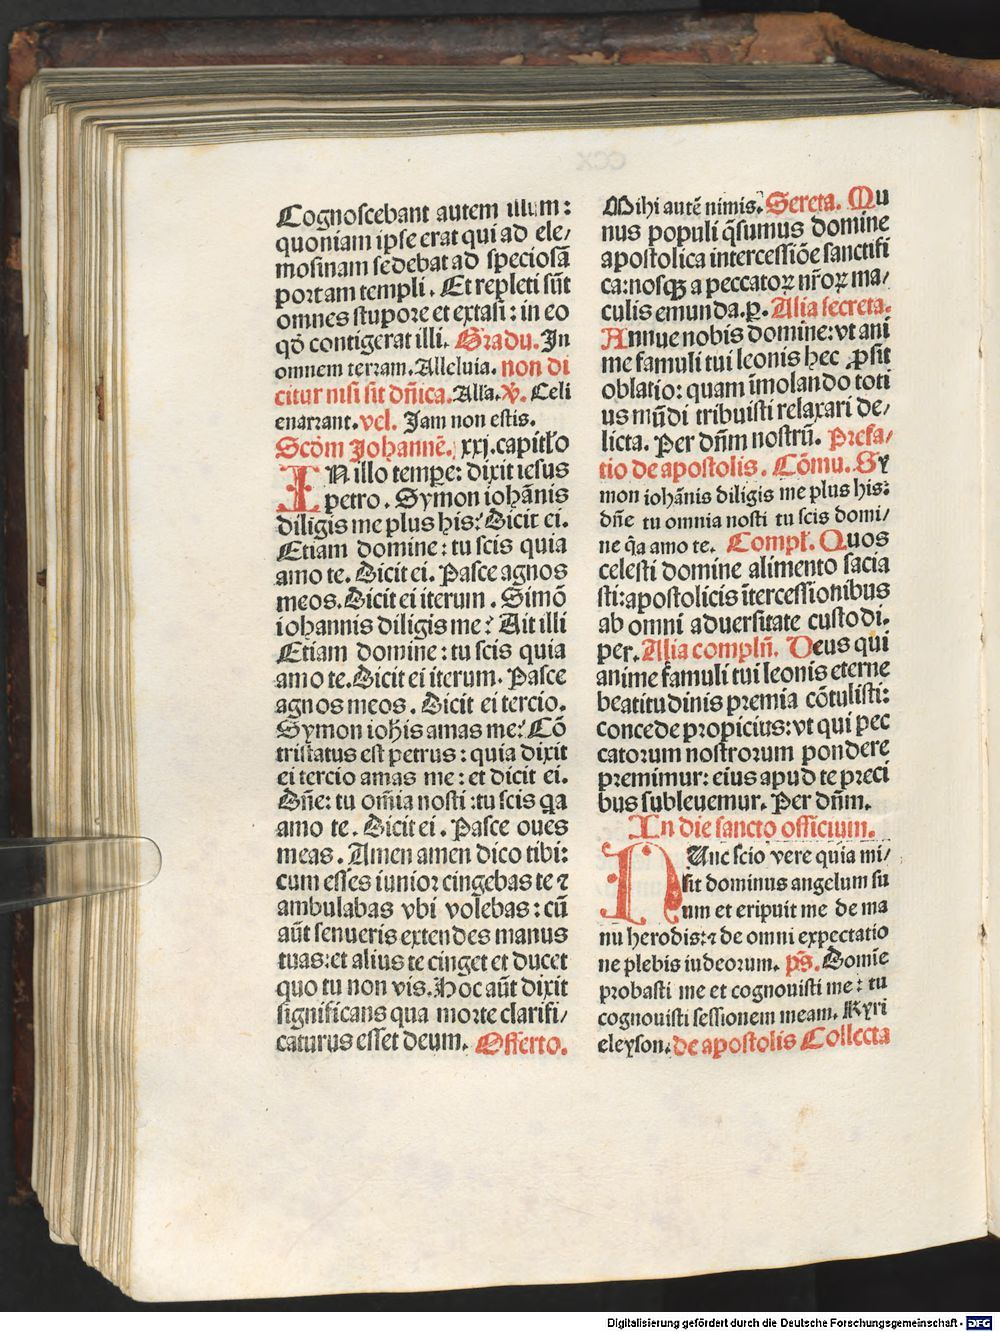 Cognoscebant autem illum:
quoniam ipse erat qui ad ele/
mosinam sedebat ad speciosā
portam templi. Et repleti sūt
omnes stupore et extasi: in eo
qd̄ contigerat illi. Gradu. In
omnem terram. Alleluia. non di
citur nisi sit dn̄ica. All'a. v̄. Celi
enarrant. vel. Jam non estis.
Scdm̄ Johannē. xxj. capitl̄o
IN illo tempꝑe: dixit iesus
petro. Symon iohānis
diligis me plus his? Dicit ei.
Etiam domine: tu scis quia
amo te. Dicit ei. Pasce agnos
meos. Dicit ei iterum. Simō
iohannis diligis me? Ait illi
Etiam domine: tu scis quia
amo te. Dicit ei iterum. Pasce
agnos meos. Dicit ei tercio.
Symon ioh̄is amas me? Cō
tristatus est petrus: quia dixit
ei tercio amas me: et dicit ei.
Dn̄e: tu om̄ia nosti: tu scis qa
amo te. Dicit ei. Pasce oues
meas. Amen amen dico tibi:
cum esses iunior cingebas te ⁊
ambulabas vbi volebas: cū
aūt senueris extendes manus
tuas: et alius te cinget et ducet
quo tu non vis. Hoc aūt dixit
significans qua morte clarifi/
caturus esset deum. Offerto.
Mihi autē nimis. Secreta. Mu
nus populi q̄sumus domine
apostolica intercessiōe sanctifi
ca: nosqꝫ a peccatoꝝ nr̄oꝝ ma/
culis emunda. p. Alia secreta.
Annue nobis domine: vt ani
me famuli tui leonis hec ꝓsit
oblatio: quam īmolando toti
us mūdi tribuisti relaxari de/
licta. Per dn̄m nostrū. Prefa/
tio de apostolis. Cōmu. Sy
mon iohānis diligis me plus his:
dn̄e tu omnia nosti tu scis domi/
ne q̄a amo te. Compl̄. Quos
celesti domine alimento sacia
sti: apostolicis ītercessionibus
ab omni aduersitate custodi.
per. Alia compln̄. Deus qui
anime famuli tui leonis eterne
beatitudinis premia cōtulisti:
concede propicius: vt qui pec
catorum nostrorum pondere
premimur: eius apud te preci
bus subleuemur. Per dn̄m.
In die sancto officium.
NUnc scio vere quia mi/
sit dominus angelum su
um et eripuit me de ma
nu herodis: ⁊ de omni expectatio
ne plebis iudeorum. ps̄. Domīe
probasti me et cognouisti me: tu
cognouisti sessionem meam. Kyri
eleyson. de apostolis Collecta
Digitalisierung gefördert durch die Deutsche Forschungsgemeinschaft - DFG